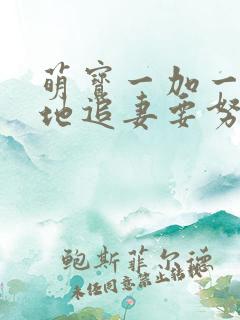 萌宝一加一
地追妻要努
鲍斯菲尔德
未经同意禁止转载